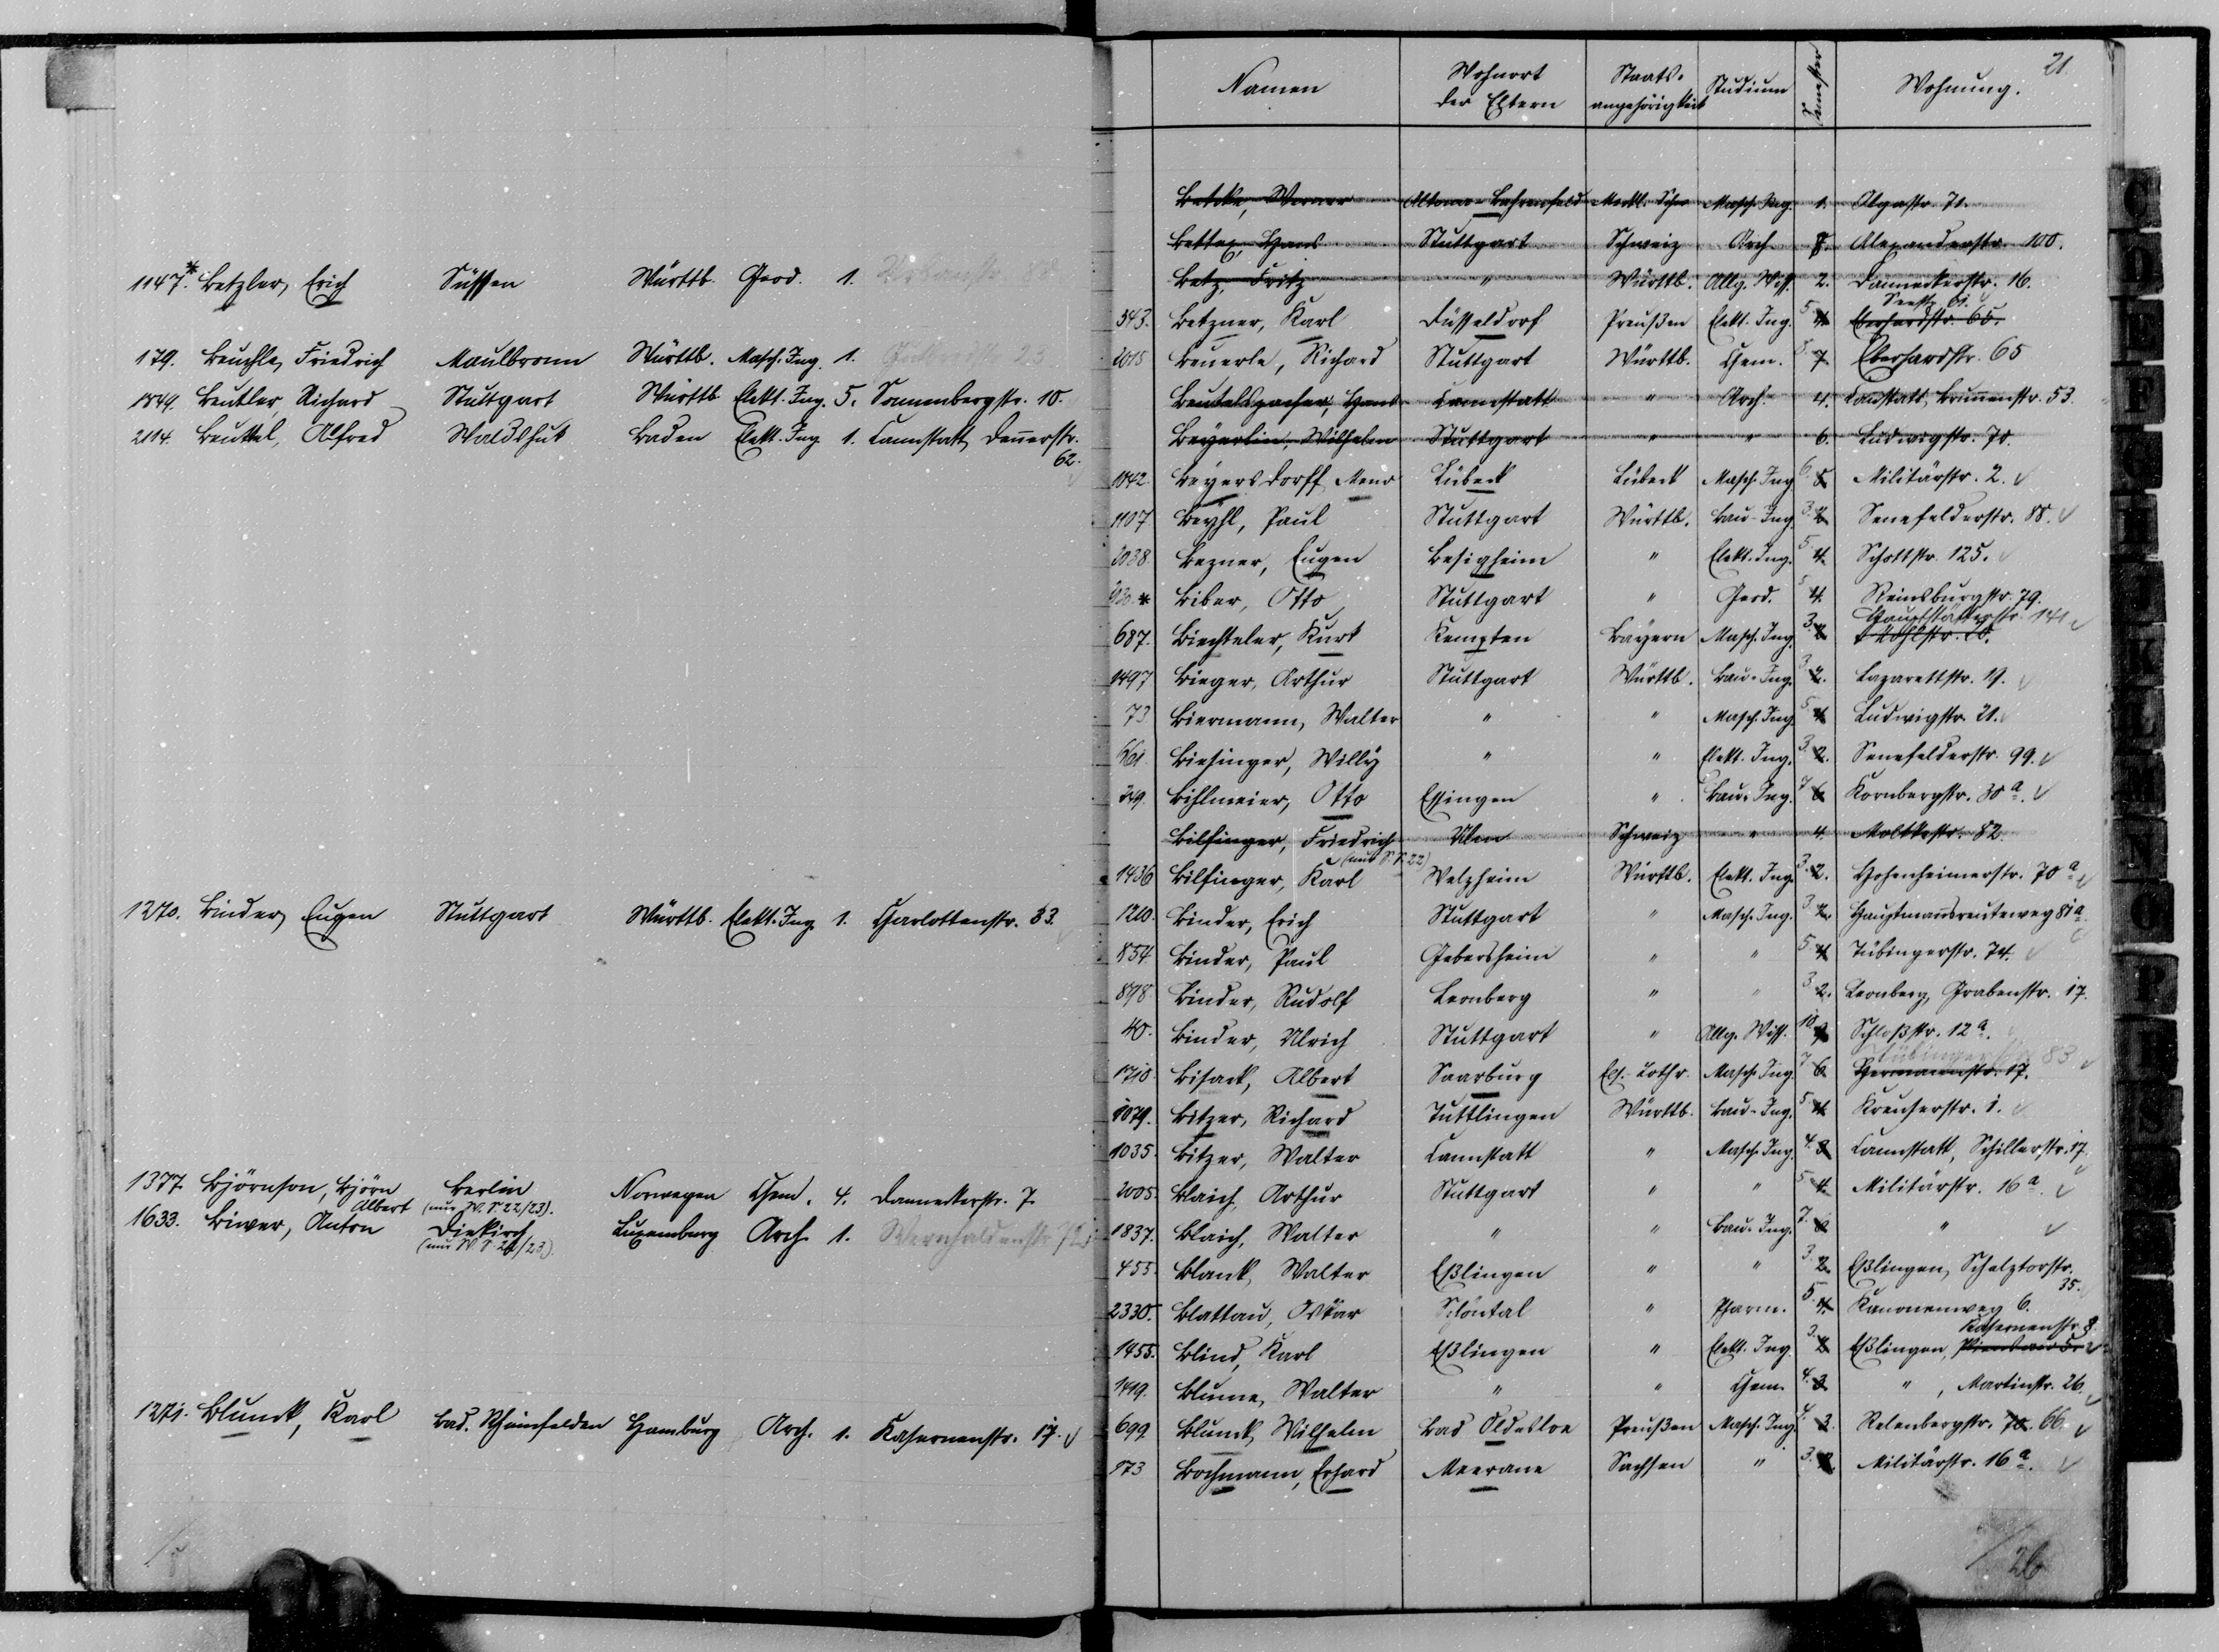 1147.* Betzler, Erich Süssen Württb. Geod. 1.
179. Beuchle, Friedrich Maulbronn Württb. Masch. Ing. 1.
1849. Beutler, Richard Stuttgart Württb. Elekt. Ing. 5. Sonnenbergstr. 10.
2114. Beuttel, Alfred Waldshut Baden Elekt. Ing. 1. Cannstatt,
62.
1270. Binder, Eugen Stuttgart Württb. Elekt. Ing. 1. Charlottenstr. 33.
1377. Björnson, Björn Berlin Norwegen Chem. 4. Danneckerstr. 7.
Albert (nur W. S. 22/23).
1633. Biwer, Anton Diekirch Luxemburg Arch. 1.
(nur W. S. 22/23).
1271. Blunck, Karl Bad. Rheinfelden Hamburg Arch. 1. Kasernenstr. 17.
21.
Namen Wohnort der Eltern Staats-angehörigkeit Studium Semester Wohnung.
Betcke, Werner Altona-Bahrenfeld Meckl. Schw. Masch. Ing. 1. Olgastr. 71.
Bettex, Hans Stuttgart Schweiz Arch. 7. Alexanderstr. 100.
Betz, Fritz " Württb. Allg. Wiss. 2. Danneckerstr. 16.
Seestr. 61.
343. Betzner, Karl Düsseldorf Preußen Elekt. Ing. 5. 4. Eberhardstr. 65.
2015 Beuerle, Richard Stuttgart Württb. Chem. 8. 7. Eberhardstr. 65
Beutelspacher, Hans Cannstatt " Arch. 4. Cannstatt, Brunnenstr. 53.
Beyerlin, Wilhelm Stuttgart " " 6. Ludwigstr. 70.
1842. Beyersdorff, Meno Lübeck Lübeck Masch. Ing. 6. 5. Militärstr. 2.
1107 Beyhl, Paul Stuttgart Württb. Bau-Ing. 3. 2. Senefelderstr. 88.
2038. Bezner, Eugen Besigheim " Elekt. Ing. 5. 4. Schottstr. 125.
* Biber, Otto Stuttgart " Geod. 5. 4. Reinsburgstr. 79.
Hauptstätterstr. 141
687. Biechteler, Kurt Kempten Bayern Masch. Ing. 3. 2.
1497 Bieger, Arthur Stuttgart Württb. Bau-Ing. 3. 2. Lazarettstr. 19.
73 Biermann, Walter " " Masch. Ing. 5. 4. Ludwigstr. 21.
661. Biesinger, Willy " " Elekt. Ing. 3. 2. Senefelderstr. 99.
349. Bihlmeier, Otto Essingen " Bau-Ing. 7. 6. Kornbergstr. 30 a.
Bilfinger, Friedrich Ulm Schweiz " 4. Moltkestr. 82.
(nur S. S. 22)
1436 Bilfinger, Karl Welzheim Württb. Elekt. Ing. 3. 2. Hohenheimerstr. 70 a
1210. Binder, Erich Stuttgart " Masch. Ing. 3. 2. Hauptmannsreuteweg 81 a.
854 Binder, Paul Gebersheim " " 5. 4. Tübingerstr. 74.
898. Binder, Rudolf Leonberg " " 3. 2. Leonberg, Grabenstr. 17.
40. Binder, Ulrich Stuttgart " Allg. Wiss. 10. 9. Schloßstr. 12 a.
Tübingerstr. 83
1710. Bisack, Albert Saarburg Els. Lothr. Masch. Ing. 7. 6. Hermannstr. 17.
1079. Bitzer, Richard Tuttlingen Württb. Bau-Ing. 5. 4. Kreuserstr. 1.
1035. Bitzer, Walter Cannstatt " Masch. Ing. 4. 3. Cannstatt, Schillerstr. 17.
2005. Blaich, Arthur Stuttgart " " 5. 4. Militärstr. 16 a.
1837. Blaich, Walter " " Bau-Ing. 7. 6. "
455. Blank, Walter Eßlingen " " 3. 2. Eßlingen, Schelztorstr.
35.
2330. Blattau, Oskar Schöntal " Pharm. 5. 4. Kanonenweg 6.
Kasernenstr. 8.
1455. Blind, Karl Eßlingen " Elekt. Ing. 3. 2. Eßlingen,
1419. Blume, Walter " " Chem. 4. 3. ", Martinstr. 26.
699 Blunck, Wilhelm Bad Oldesloe Preußen Masch. Ing. 4. 3. Relenbergstr. 70. 66.
173 Bochmann, Erhard Meerane Sachsen " 3. 2. Militärstr. 16 a.
26